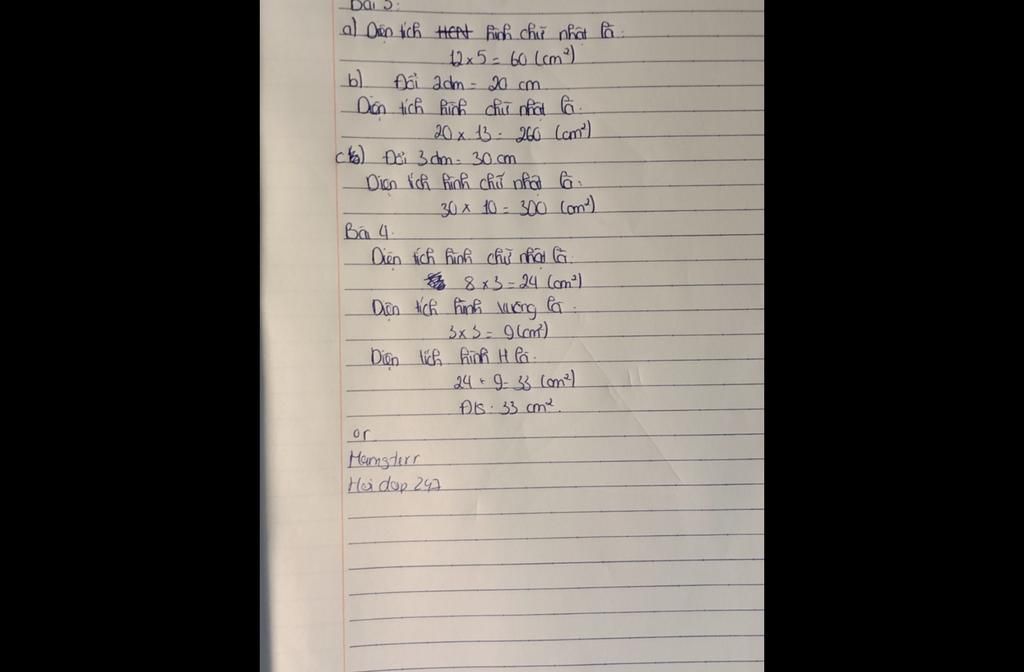 Bài 3:
a) Diện tích HCN hình chữ nhật là:
12 x 5 = 60 (cm²)
b) Đổi 2dm = 20 cm
Diện tích hình chữ nhật là:
20 x 13 = 260 (cm²)
c) Đổi 3dm = 30 cm
Diện tích hình chữ nhật là:
30 x 10 = 300 (cm²)
Bài 4.
Diện tích hình chữ nhật là:
8 x 3 = 24 (cm²)
Diện tích hình vuông là:
3 x 3 = 9 (cm²)
Diện tích hình H là:
24 + 9 = 33 (cm²)
Đ/S: 33 cm².
or
Hamsterr
Hoi dap 247